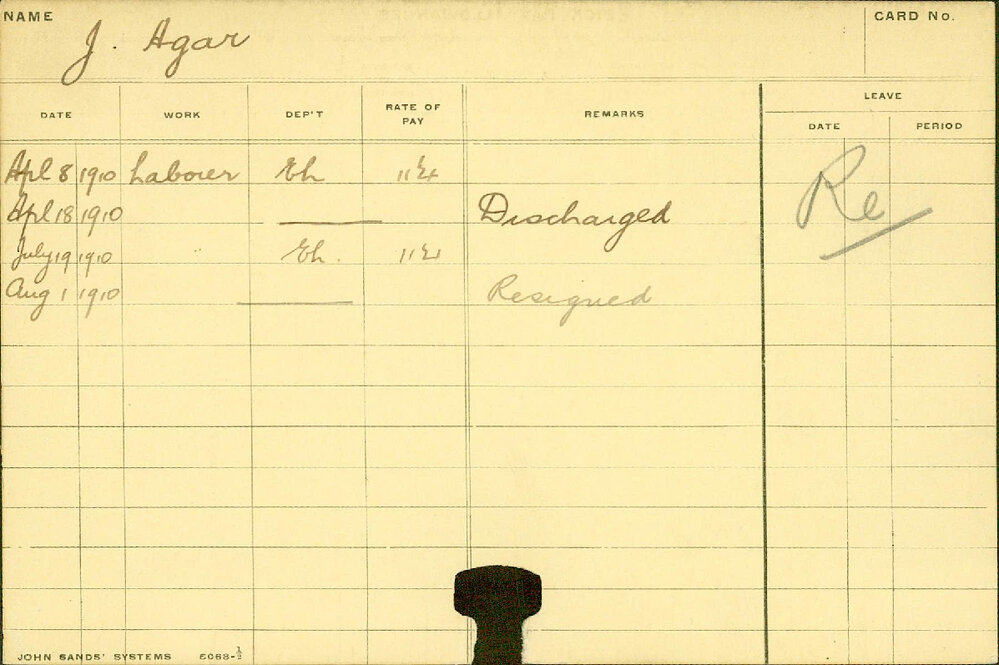 NAME J. Agar CARD No.
LEAVE
DATE WORK DEP'T RATE OF PAY REMARKS DATE PERIOD
Apl 8 1910 Laborer Eh
Apl 18 1910 Discharged Re
July 19 1910 Eh.
Aug 1 1910 Resigned
JOHN SANDS' SYSTEMS